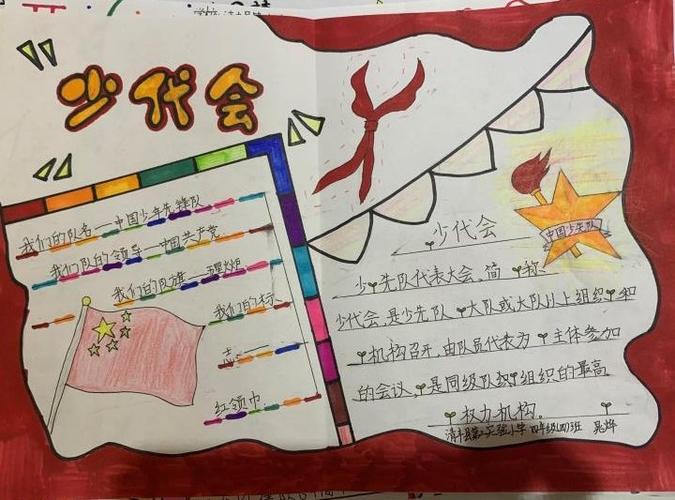 少代会
我们的队名—中国少年先锋队
我们队的领导—中国共产党
我们的队旗—星星火炬
我们的标
志——
红领巾
中国少年先队
少代会
少先队代表大会,简称
少代会,是少先队大队或大队以上组织和
机构召开,由队员代表为主体参加
的会议,是同级队级组织的最高
权力机构。
清丰县第二实验小学 四年级(四)班